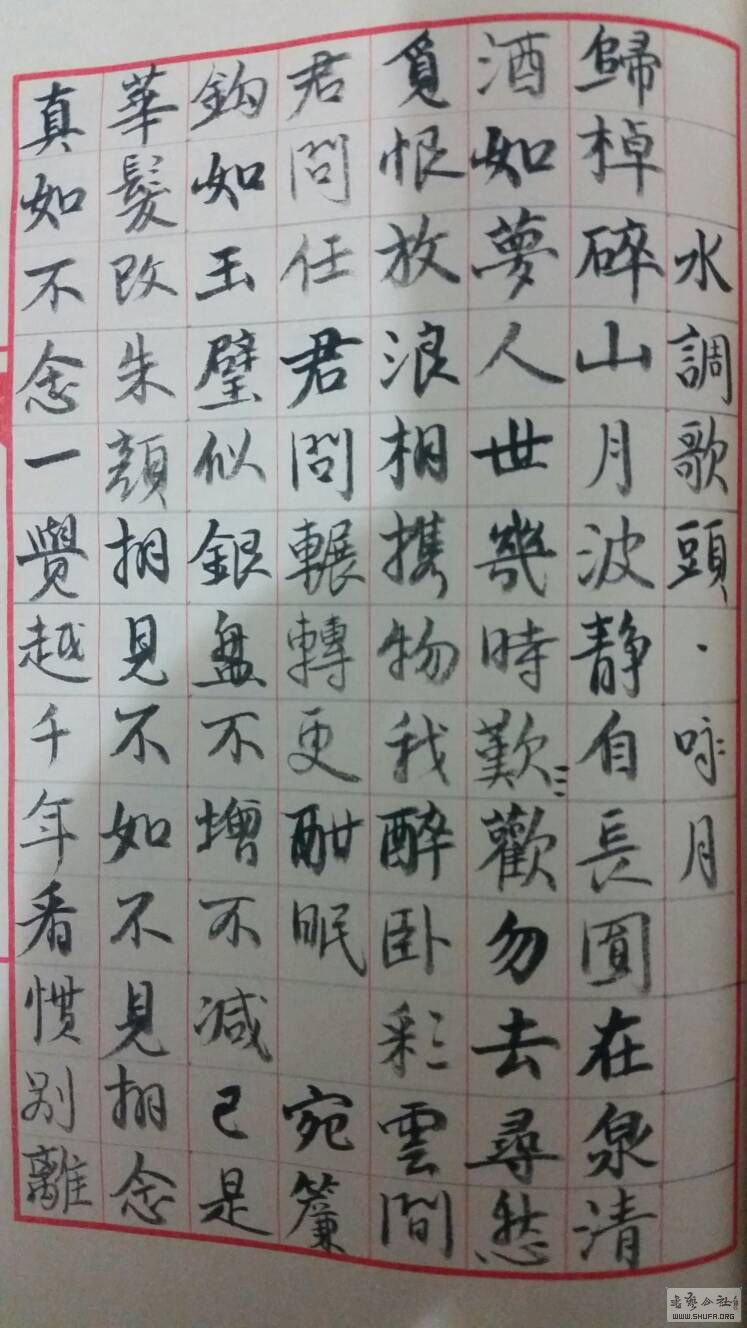 水調歌頭·咏月
歸棹碎山月波靜自長圓在泉清
酒如夢人世幾時歎歡勿去尋愁
覓恨放浪相携物我醉卧彩雲間
君問任君問輾轉更酣眠 宛簾
鈎如玉璧似銀盤不增不減已是
華髮改朱顔相見不如不見相念
真如不念一覺越千年看慣别離
书藝公社
WWW.SHUFA.ORG